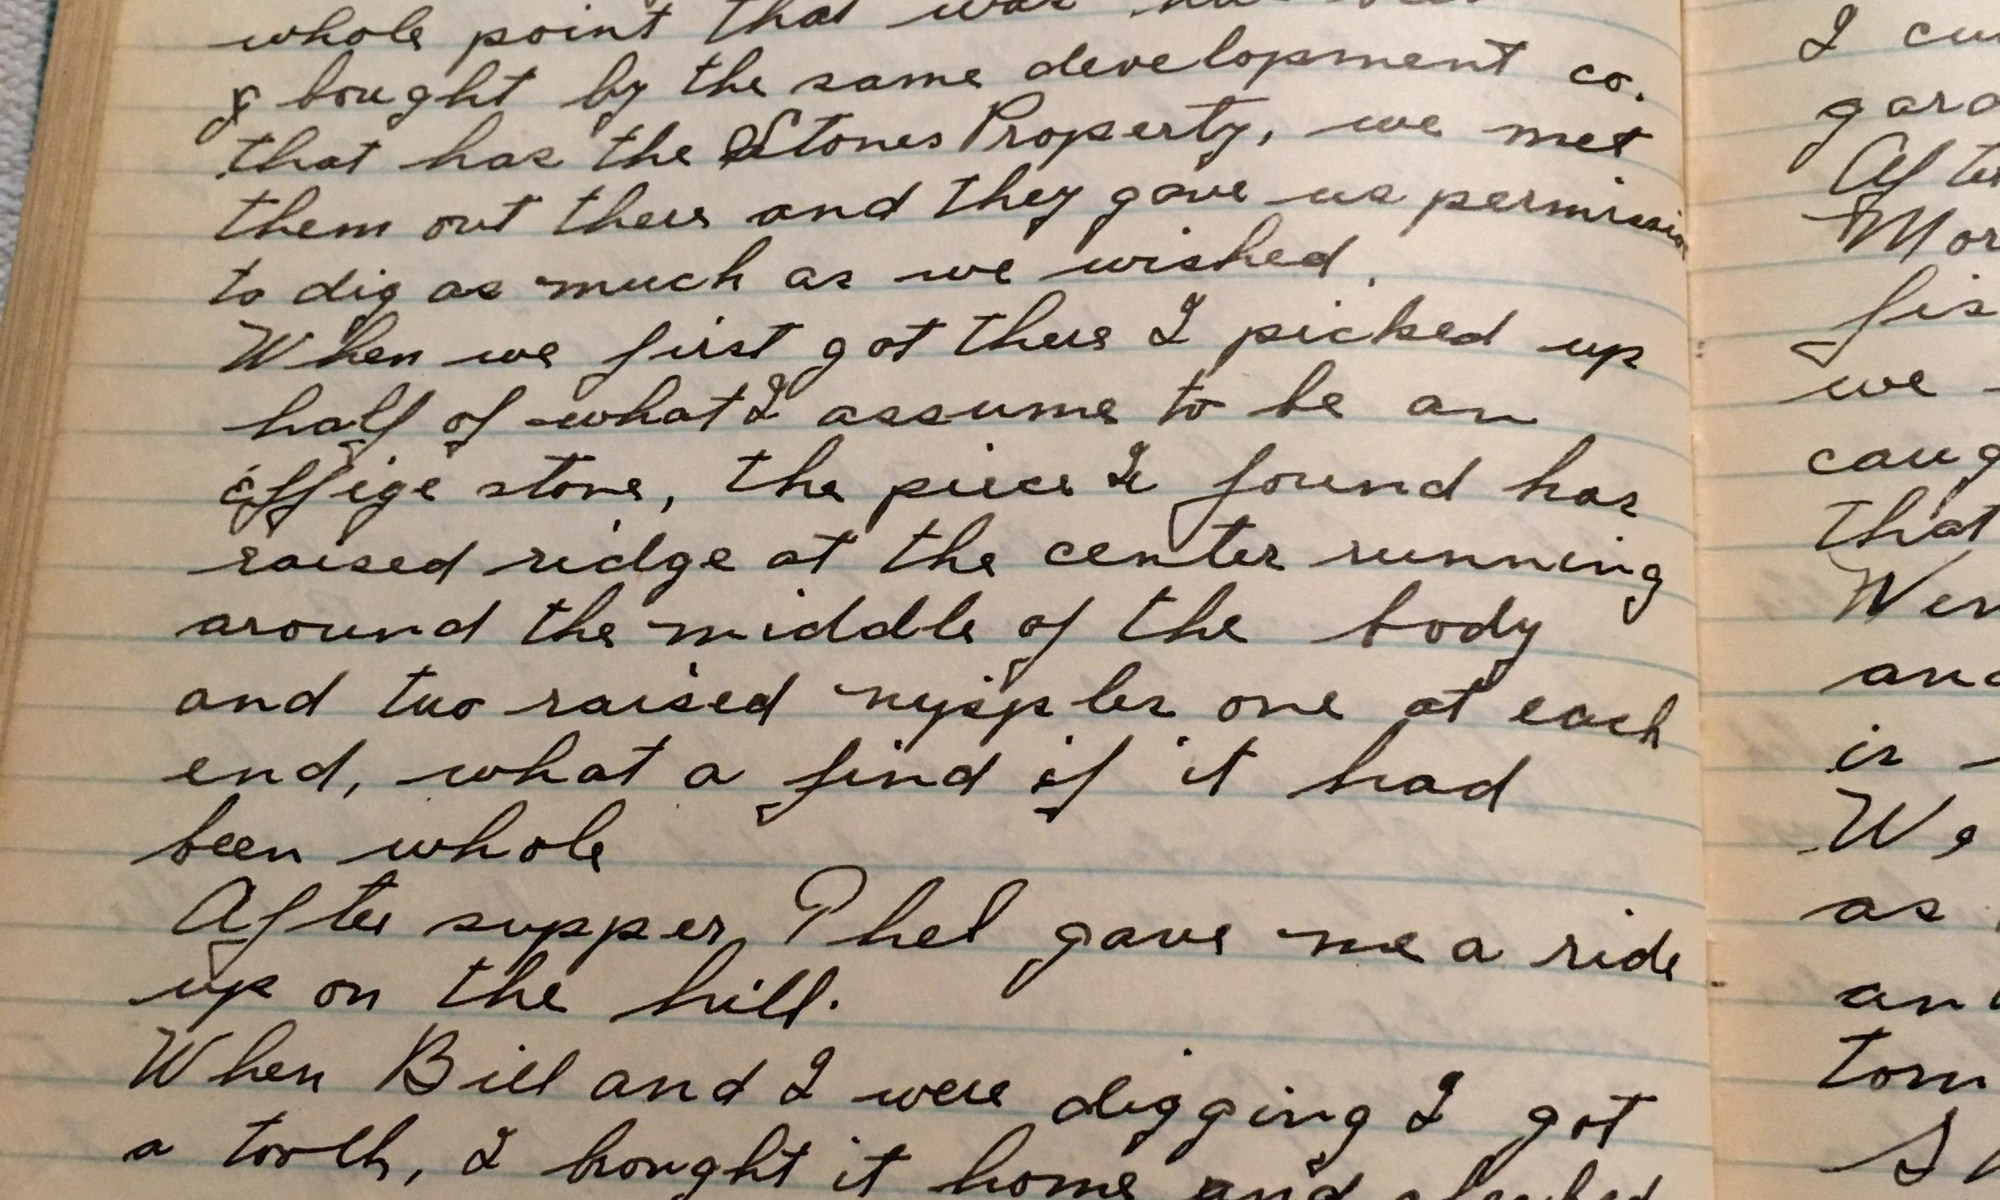 whole point that was
& bought by the same development co.
that has the Stones Property, we met
them out there and they gave us permission
to dig as much as we wished.
When we first got there I picked up
half of what I assume to be an
effige stone, the piece I found has
raised ridge at the center running
around the middle of the body
and two raised nypples one at each
end, what a find if it had
been whole
After supper Phel gave me a ride
up on the hill.
When Bill and I were digging I got
a tooth, I bought it home and
I
we
that
and
is
We
as